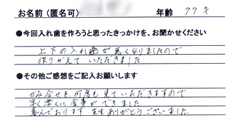 お名前（匿名可） 年齢 77才
●今回入れ歯を作ろうと思ったきっかけを、お聞かせください
上下の入れ歯が悪くなりましたので
作りかえていただきました
●その他ご感想をご記入お願いします
かみ合せを何度も見ていただきますので
早く楽に食事ができました
喜んでおります 先生ありがとうございました。